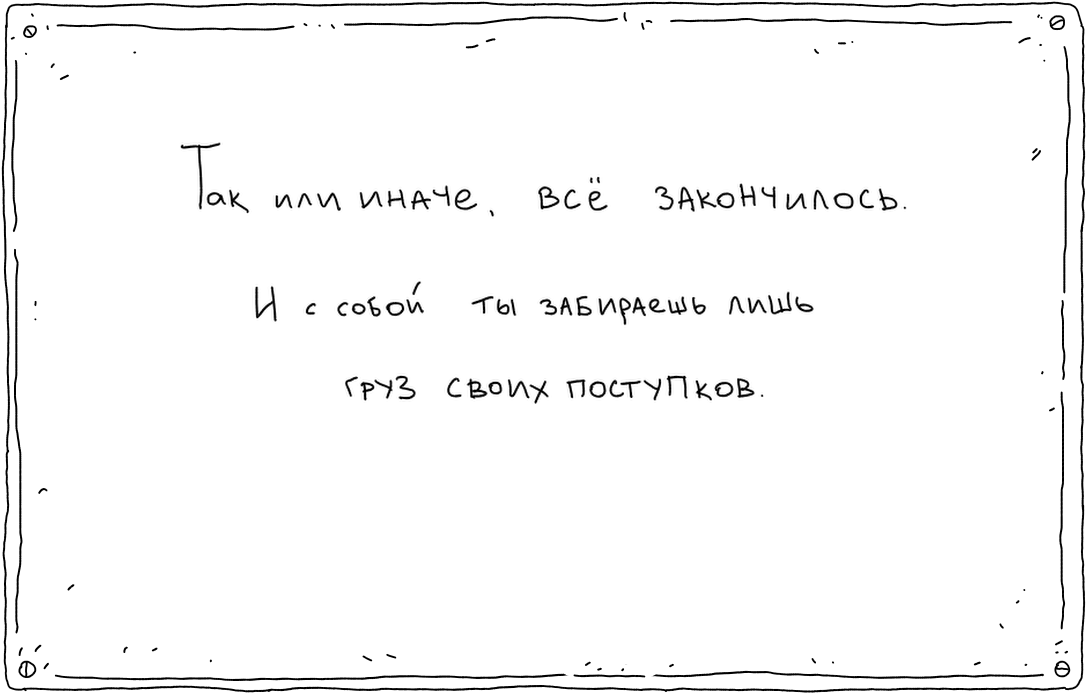 Так или иначе, всё закончилось.
И с собой ты забираешь лишь
груз своих поступков.